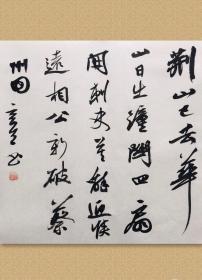 荆山已去華
山日出潼關四扇
開刺史莫辞迎候
遠相公新破蔡
州回